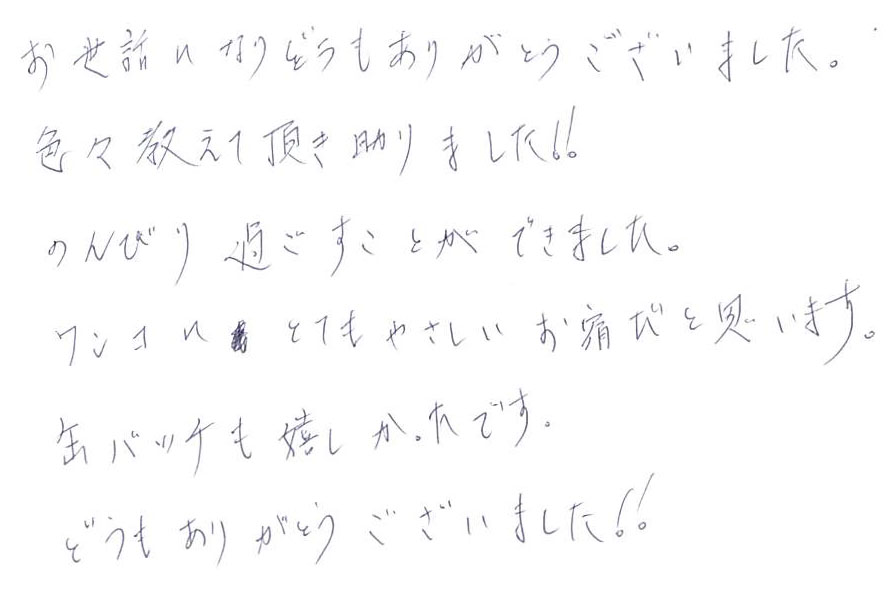 お世話になりどうもありがとうございました。
色々教えて頂き助りました!!
のんびり過ごすことができました。
ワンコに とてもやさしいお宿だと思います。
缶バッチも嬉しかったです。
どうもありがとうございました!!